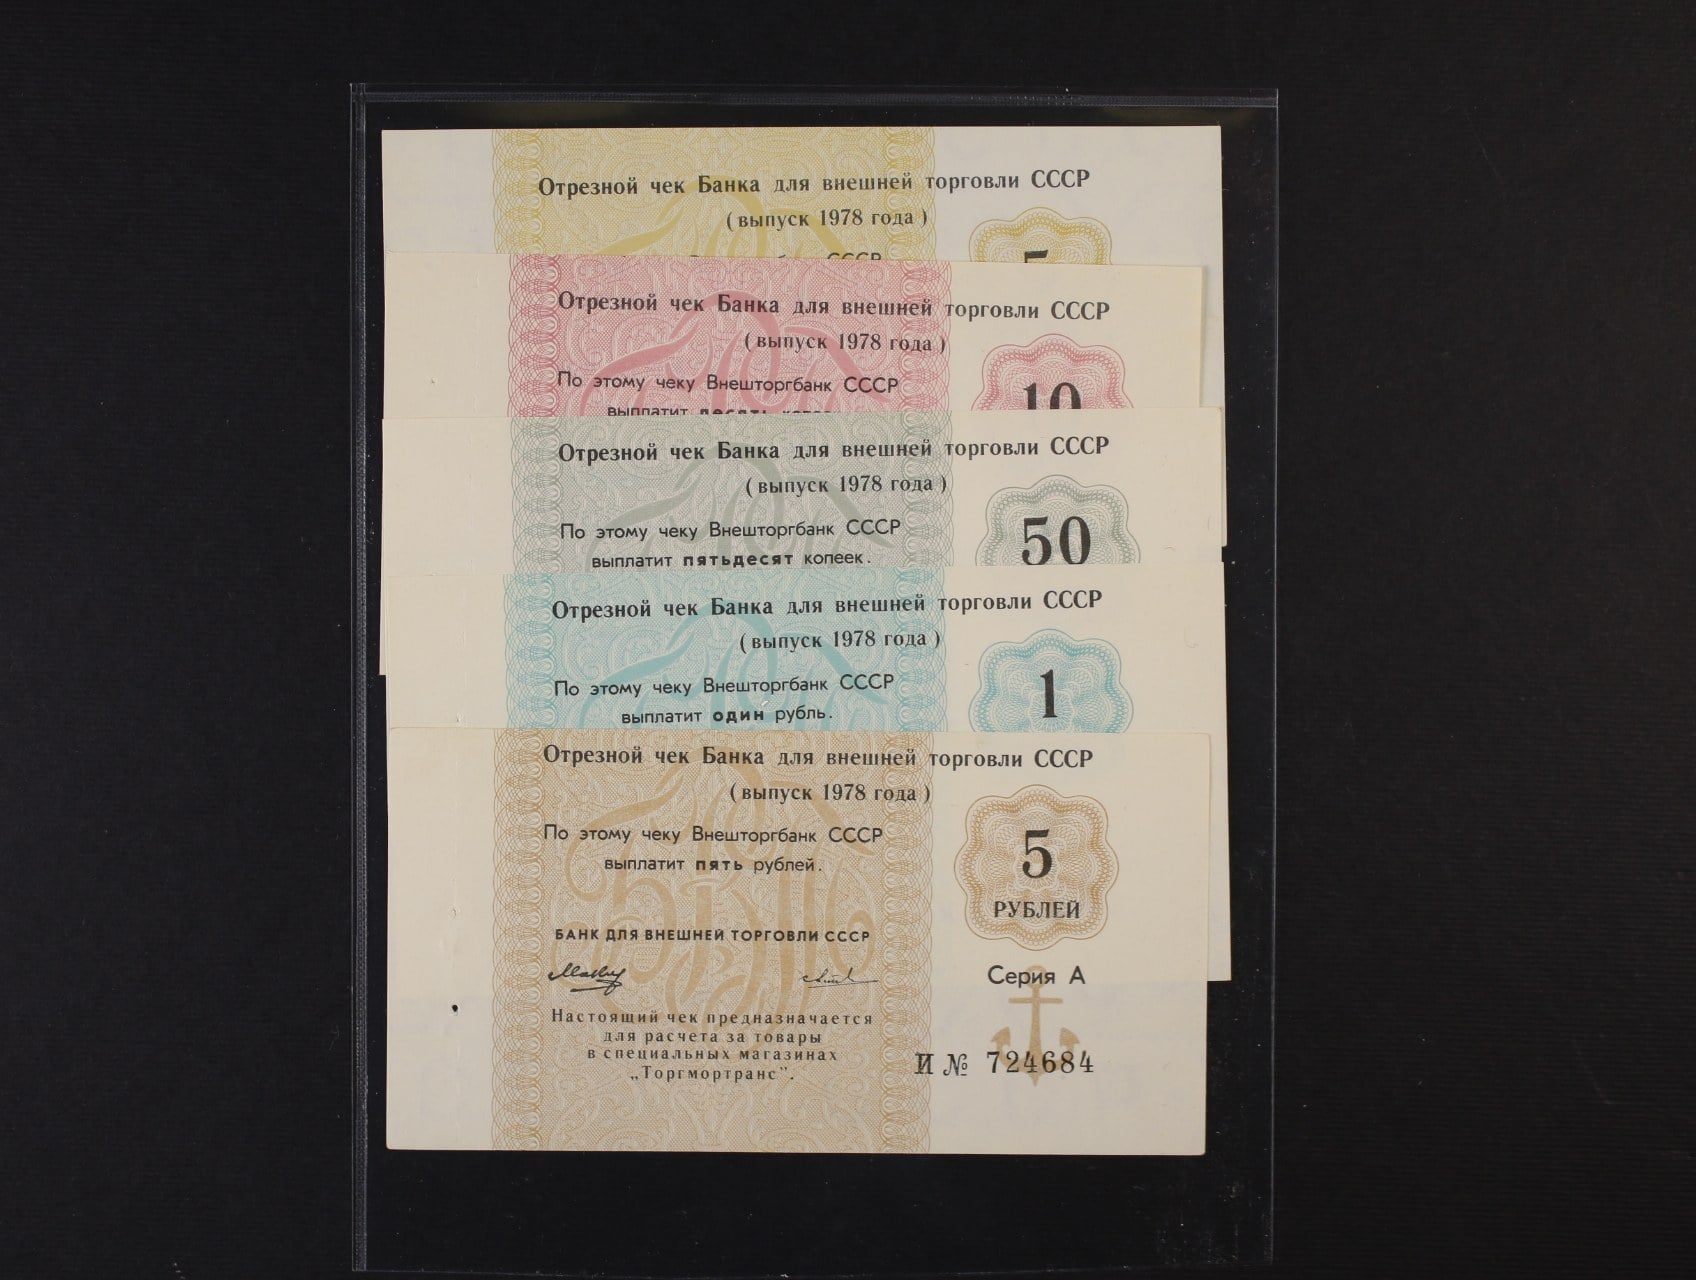 Отрезной чек Банка для внешней торговли СССР
(выпуск 1978 года)
5
СССР
Отрезной чек Банка для внешней торговли СССР
(выпуск 1978 года)
По этому чеку Внешторгбанк СССР
выплатит десять
10
Отрезной чек Банка для внешней торговли СССР
(выпуск 1978 года)
По этому чеку Внешторгбанк СССР
выплатит пятьдесят копеек.
50
Отрезной чек Банка для внешней торговли СССР
(выпуск 1978 года)
По этому чеку Внешторгбанк СССР
выплатит один рубль.
1
Отрезной чек Банка для внешней торговли СССР
(выпуск 1978 года)
По этому чеку Внешторгбанк СССР
выплатит пять рублей.
5
РУБЛЕЙ
БАНК ДЛЯ ВНЕШНЕЙ ТОРГОВЛИ СССР
Серия А
Настоящий чек предназначается
для расчета за товары
в специальных магазинах
„Торгмортранс".
И № 724684